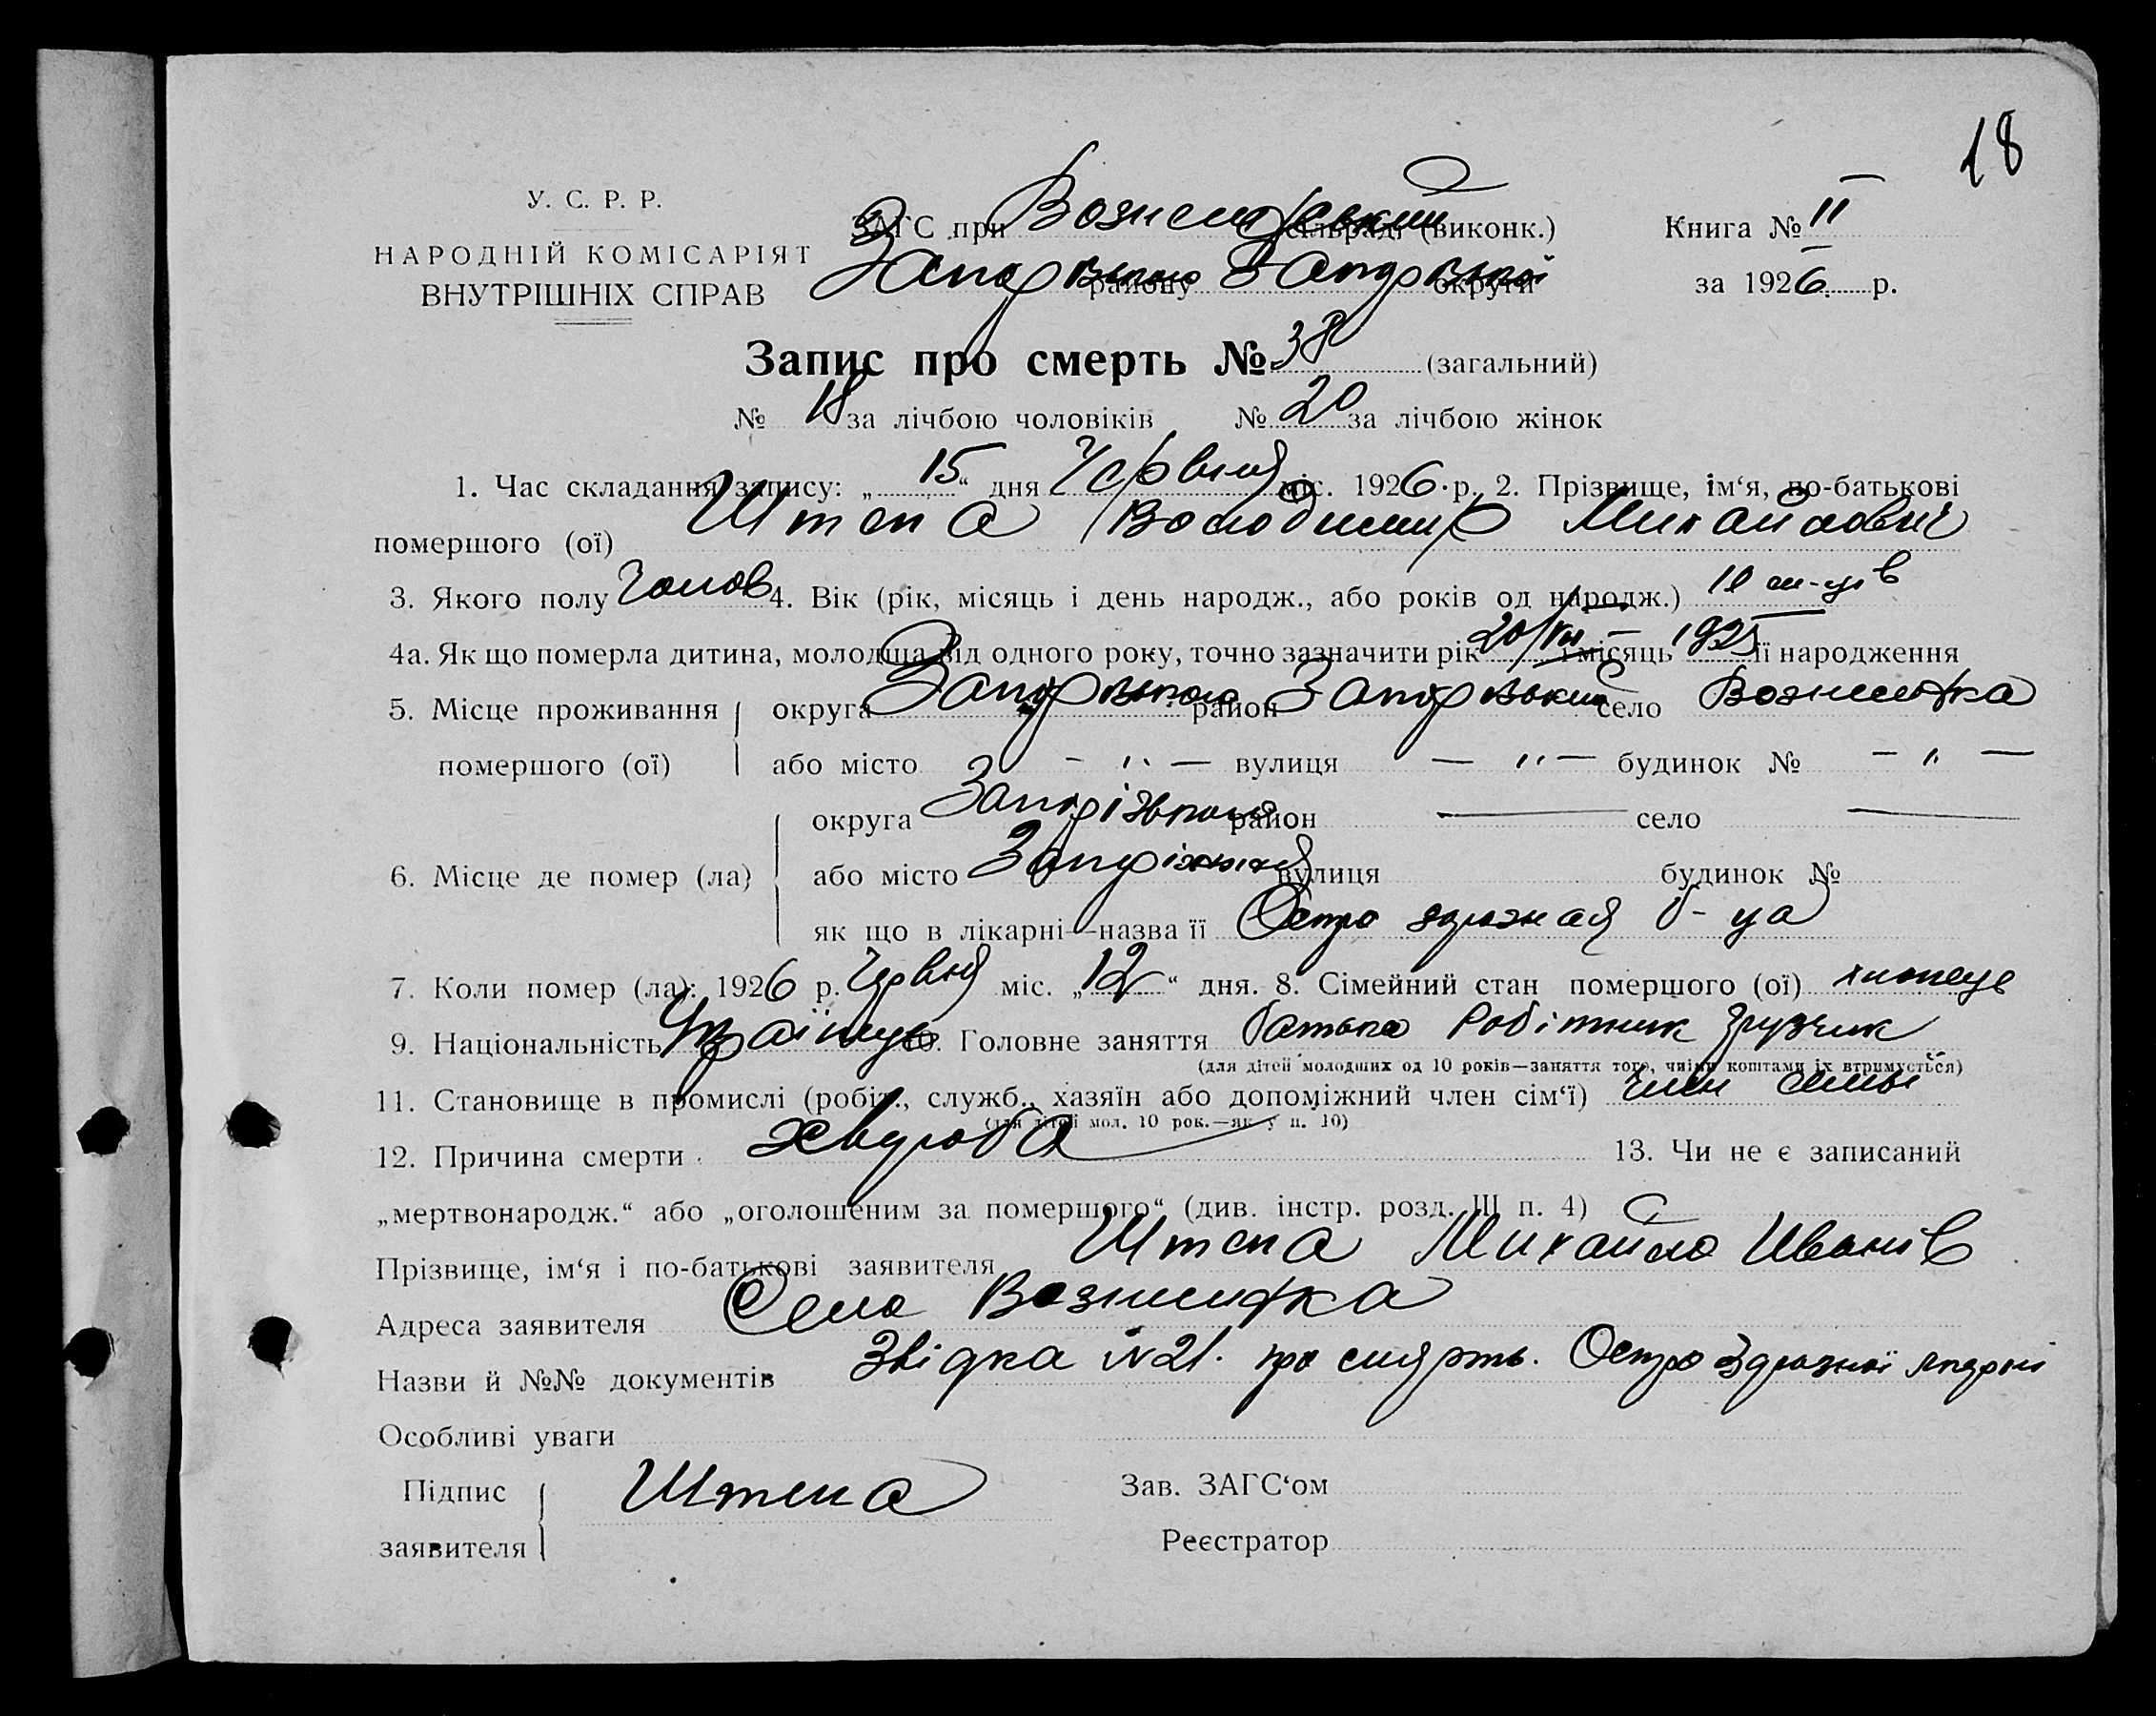 18
У. С. Р. Р.
НАРОДНІЙ КОМІСАРІЯТ
ВНУТРІШНІХ СПРАВ
ЗАГС при Вознесенським сільраді (виконк.)
району округи
Книга № II
за 1926 р.
Запис про смерть № 38 (загальний)
№ 18 за лічбою чоловіків № 20 за лічбою жінок
1. Час складання запису: „ 15 “ дня Червня міс. 1926 р. 2. Прізвище, ім‘я, по-батькові
помершого (ої) Штепа Володимир Михайлович
3. Якого полу Чолов 4. Вік (рік, місяць і день народж., або років од народж.)
4а. Як що померла дитина, молодша від одного року, точно зазначити рік 20/VII і місяць 1925 її народження
5. Місце проживання округа район село
помершого (ої) або місто — " — вулиця — " — будинок № — " —
округа район — село —
6. Місце де помер (ла) або місто вулиця будинок №
як що в лікарні—назва її б-ца
7. Коли помер (ла): 1926 р. Червня міс. „ 12 “ дня. 8. Сімейний стан помершого (ої) хлопець
9. Національність Українець 10. Головне заняття батька Робітник грузчик
(для дітей молодших од 10 років—заняття того, чиїми коштами їх втримується)
11. Становище в промислі (робіт., служб., хазяїн або допоміжний член сім‘ї) член семьї
(для дітей мол. 10 рок.—як у п. 10)
12. Причина смерти хвороба 13. Чи не є записаний
„мертвонародж.“ або „оголошеним за помершого“ (див. інстр. розд. III п. 4)
Прізвище, ім‘я і по-батькові заявителя Штепа Михайло Иванів
Адреса заявителя Село
Назви й №№ документів Звідка №21. про смярть.
Особливі уваги
Підпис Штепа Зав. ЗАГС‘ом
заявителя Реєстратор